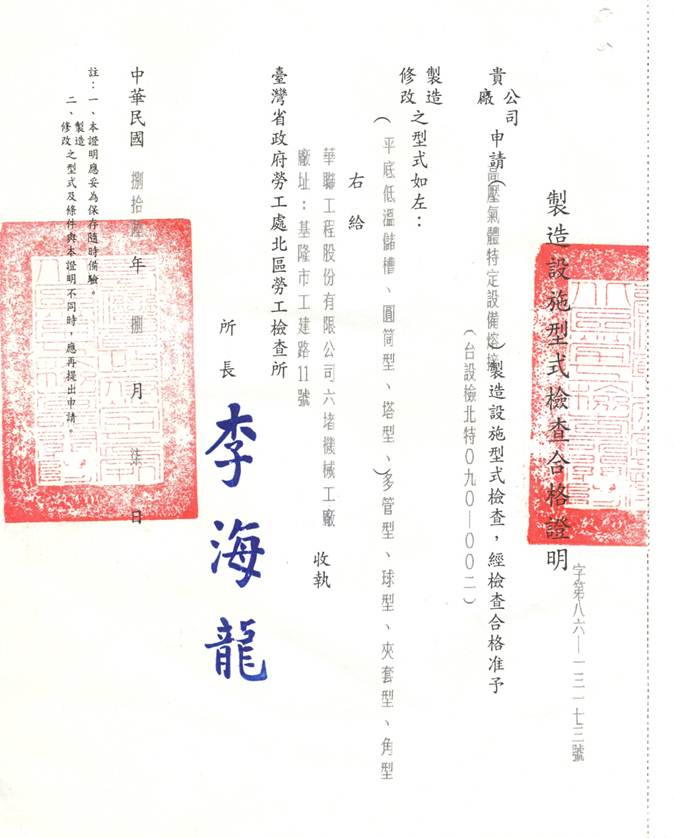 製造設施型式檢查合格證明
字第八六—一三一七三號
貴公司廠申請(高壓氣體特定設備熔接)製造設施型式檢查，經檢查合格准予
(台設檢北特０九０—００二)
製造修改之型式如左：
(平底低溫儲槽、圓筒型、塔型、)多管型、球型、夾套型、角型
右給
華聯工程股份有限公司六堵機械工廠
廠址：基隆市工建路11號
收執
臺灣省政府勞工處北區勞工檢查所
所長 李海龍
中華民國捌拾陸年捌月柒日
註：一、本證明應妥為保存隨時備驗。
二、製造修改之型式及條件與本證明不同時，應再提出申請。